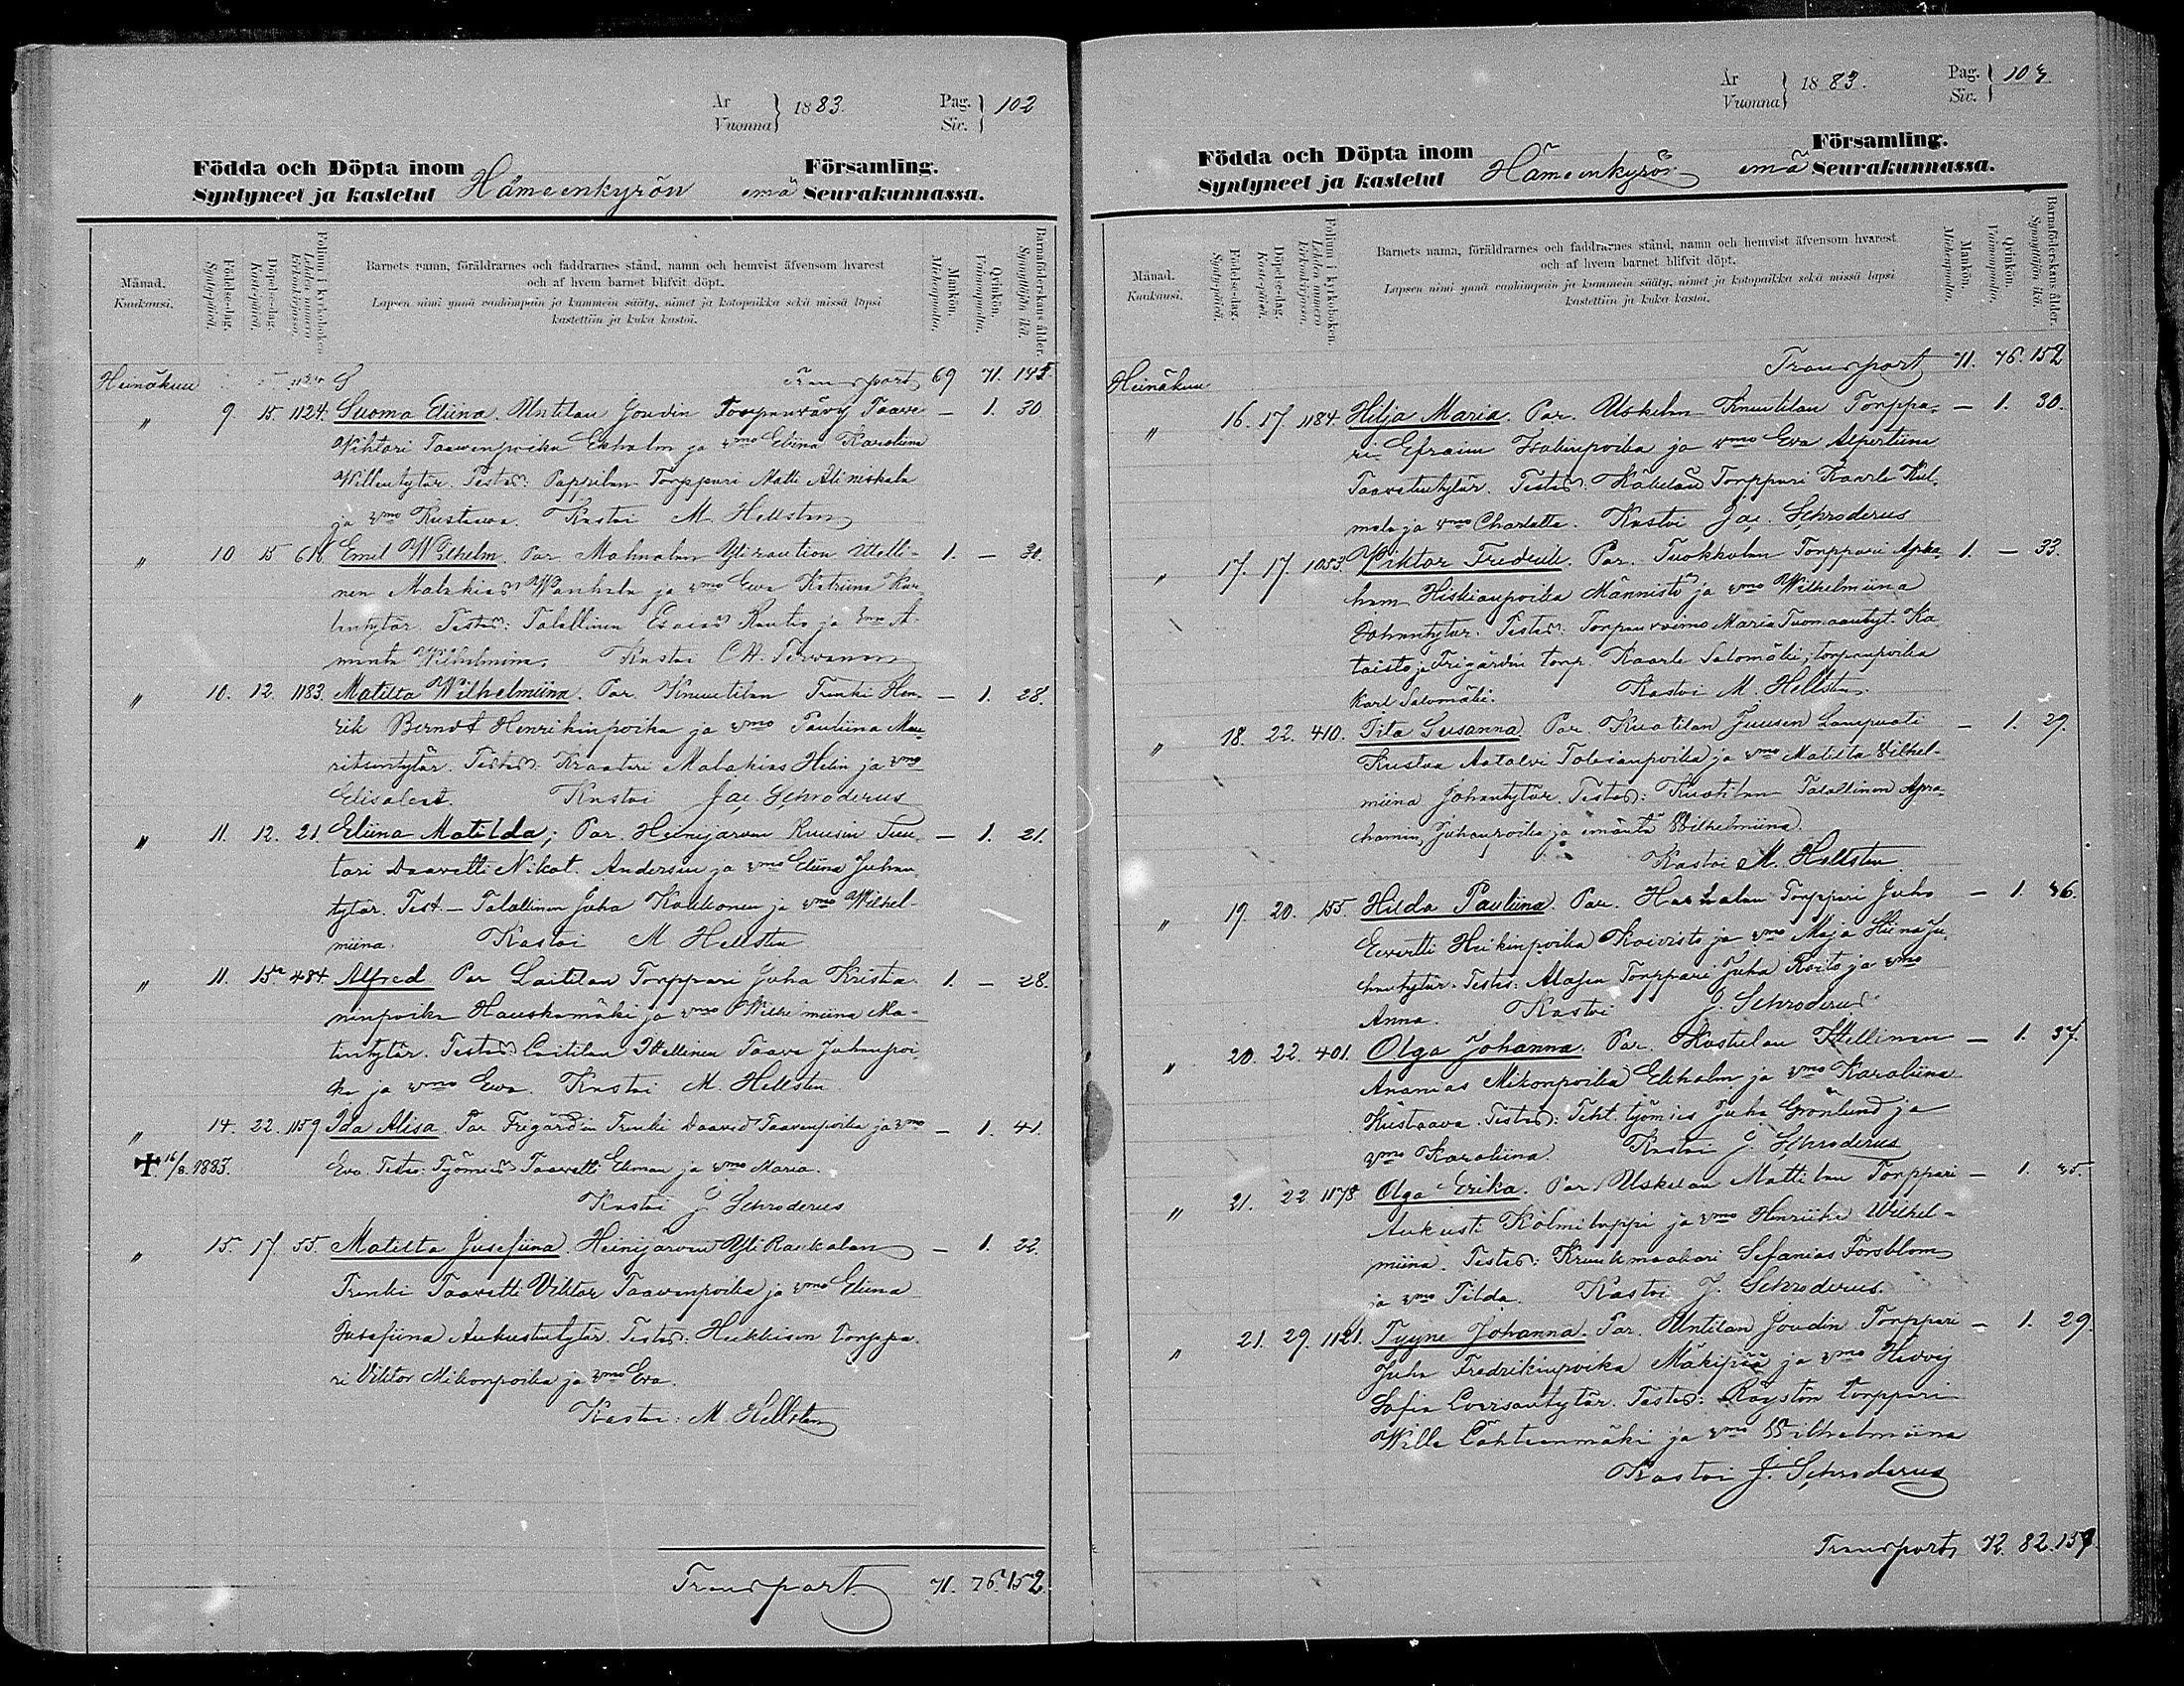 År
Vuonna } 1883.
Pag.
Siv. } 102
Födda och Döpta inom
Syntyneet ja kastetut Hämeenkyrön emä
Församling.
Seurakunnassa.
Månad.
Kuukausi.
Födelse-dag.
Syntypäivä.
Döpelse-dag.
Kastepäivä.
Folium i kyrkoboken
Lehden numero
Kirkonkirjassa.
Barnets namn, föräldrarnes och faddrarnes stånd, namn och hemvist äfvensom hvarest
och af hvem barnet blifvit döpt.
Lapsen nimi ynnä vanhimpain ja kummein sääty, nimet ja kotopaikka sekä missä lapsi
kastettiin ja kuka kastoi.
Mankön.
Miehenpuolia.
Qvinkön.
Vaimonpuolia.
Barnaföderskans ålder.
Synnyttäjän ikä.
Heinäkuu Transport 69 71. 145
" 9. 15. 1124. Suoma Eliina. Untilan Joudin Torpanvävy Taave — 1. 30
Wihtori Taavenpoika Ekholm ja vmo Eliina Karoliina
Willentytär. Testes: Pappilan Torppari Matti Aliniskala
ja vmo Kustaava. Kastoi M. Hellsten
" 10 15 618. Emil Wilhelm. Par Mahnalan Yliraution Itselli- 1. — 30.
nen Malakias Wanhala ja vmo Ewa Katriina Kaar-
lentytär. Testes: Talollinen Esaias Rautio ja vmo A-
manta Wilhelmina. Kastoi
" 10. 12. 1183. Matilta Wilhelmiina. Par. Knuutilan Trenki Hen- — 1. 28.
rik Berndt Henrikinpoika ja vmo Pauliina Mau-
ritsentytär. Testes: Kraatari Malakias Helin ja vmo
Elisabet. Kastoi Jac. Schroderus
" 11. 12. 21. Eliina Matilda; Par. Heinijärven Ruusin Tuu- — 1. 21.
tari Daavetti Nikol. Andersin ja vmo Eliina Juhan-
tytär. Test. — Talollinen Juha Kaukonen ja vmo Wilhel-
miina. Kastoi M Hellsten
" 11. 15. 484. Alfred Par Laitilan Torppari Juha Kristia- 1. — 28.
ninpoika Hauskamäki ja vmo Wilhelmiina Ma-
tintytär. Testes Laitilan Itsellinen Taave Juhanpoi-
ka ja vmo Ewa. Kastoi M. Hellsten
" 14. 22. 1159 Ida Alisa. Par Frigårdin Trenki Daaved Taavenpoika ja vmo — 1. 41.
✝ 16/8. 1883. Eva. Testes: Työmies Taavetti Ekman ja vmo Maria.
Kastoi J. Schroderus
" 15. 17. 55. Matilta Josefiina. Heinijärven Yli Raukalan — 1. 22.
Trenki Taavetti Viktor Taavenpoika ja vmo Eliina
Josefiina Aukustintytär. Testes: Heikkisen Torppa-
ri Viktor Mikonpoika ja vmo Eva.
Kastoi: M. Hellsten
Transport 71. 76. 152
År
Vuonna } 1883.
Pag.
Siv. } 103
Födda och Döpta inom
Syntyneet ja kastetut Hämeenkyrön emä
Församling.
Seurakunnassa.
Månad.
Kuukausi.
Födelse-dag.
Syntypäivä.
Döpelse-dag.
Kaste-päivä.
Folium i kyrkoboken.
Lehden numero
Kirkonkirjassa.
Barnets namn, föräldrarnes och faddrarnes stånd, namn och hemvist äfvensom hvarest
och af hvem barnet blifvit döpt.
Lapsen nimi ynnä vanhimpain ja kummein sääty, nimet ja kotopaikka sekä missä lapsi
kastettiin ja kuka kastoi.
Mankön.
Miehenpuolia.
Qvinkön.
Vaimonpuolia.
Barnaföderskans ålder.
Synnyttäjän ikä.
Heinäkuu Transport 71. 76. 152
" 16. 17. 1184. Hilja Maria. Par. Uskelan Knuutilan Torppa- — 1. 30.
ri Efraim Isakinpoika ja vmo Eva Alpertiina
Taavetintytär. Testes: Torppari Kaarle Kul-
mala ja vmo Charlotta. Kastoi Jac. Schroderus
" 17. 17. 1053. Viktor Fredrik. Par. Tuokkolan Torppari Apra- 1. — 33.
ham Hiskianpoika Männistö ja vmo Wilhelmiina
Johantytär. Testes: Torpan vaimo Maria Tuomaantyt. Ka-
taisto ja Frigårdin torp. Kaarle Salomäki; torpanpoika
Karl Salomäki. Kastoi M. Hellsten.
" 18. 22. 410. Tita Susanna Par. Kuotilan Juusen Lampuoti — 1. 29.
Kustaa Aatolvi Topiaanpoika ja vmo Matilta Vilhel-
miina Johantytär. Testes: Kuotilan Talollinen Apra-
hamin, Juhanpoika ja emäntä Wilhelmiina.
Kastoi M. Hellsten
" 19. 20. 155. Hilda Pauliina. Par. Torppari Juho — 1. 46.
Eevertti Heikinpoika Koivisto ja vmo Maja Stiina Ju-
hantytär. Testes: Alajen Torppari Juha Koito ja vmo
Anna. Kastoi J. Schroderus
" 20. 22. 401. Olga Johanna. Par. Kostulan Itsellinen — 1. 37.
Ananias Mikonpoika Ekholm ja vmo Karoliina
Kustaava. Testes: Teht. työmies Juha Grönlund ja
vmo Karoliina. Kastoi J. Schroderus
" 21. 22 1178. Olga Erika. Par. Uskelan Mattilan Torppari — 1. 35
Aukusti Kolmiloppi ja vmo Henriika Wilhel-
miina. Testes: Kruukmaakari Sefanias Forsblom
ja vmo Tilda. Kastoi J. Schroderus.
" 21. 29. 1121. Tyyne Johanna. Par. Untilan Joudin Torppari — 1. 29.
Juha Fredrikinpoika Mäkipää ja vmo Hedvig
Sofia Lovisantytär. Testes: Röystön torppari
Wille Lähteenmäki ja vmo Wilhelmiina
Kastoi J. Schroderus
Transport 72. 82. 159